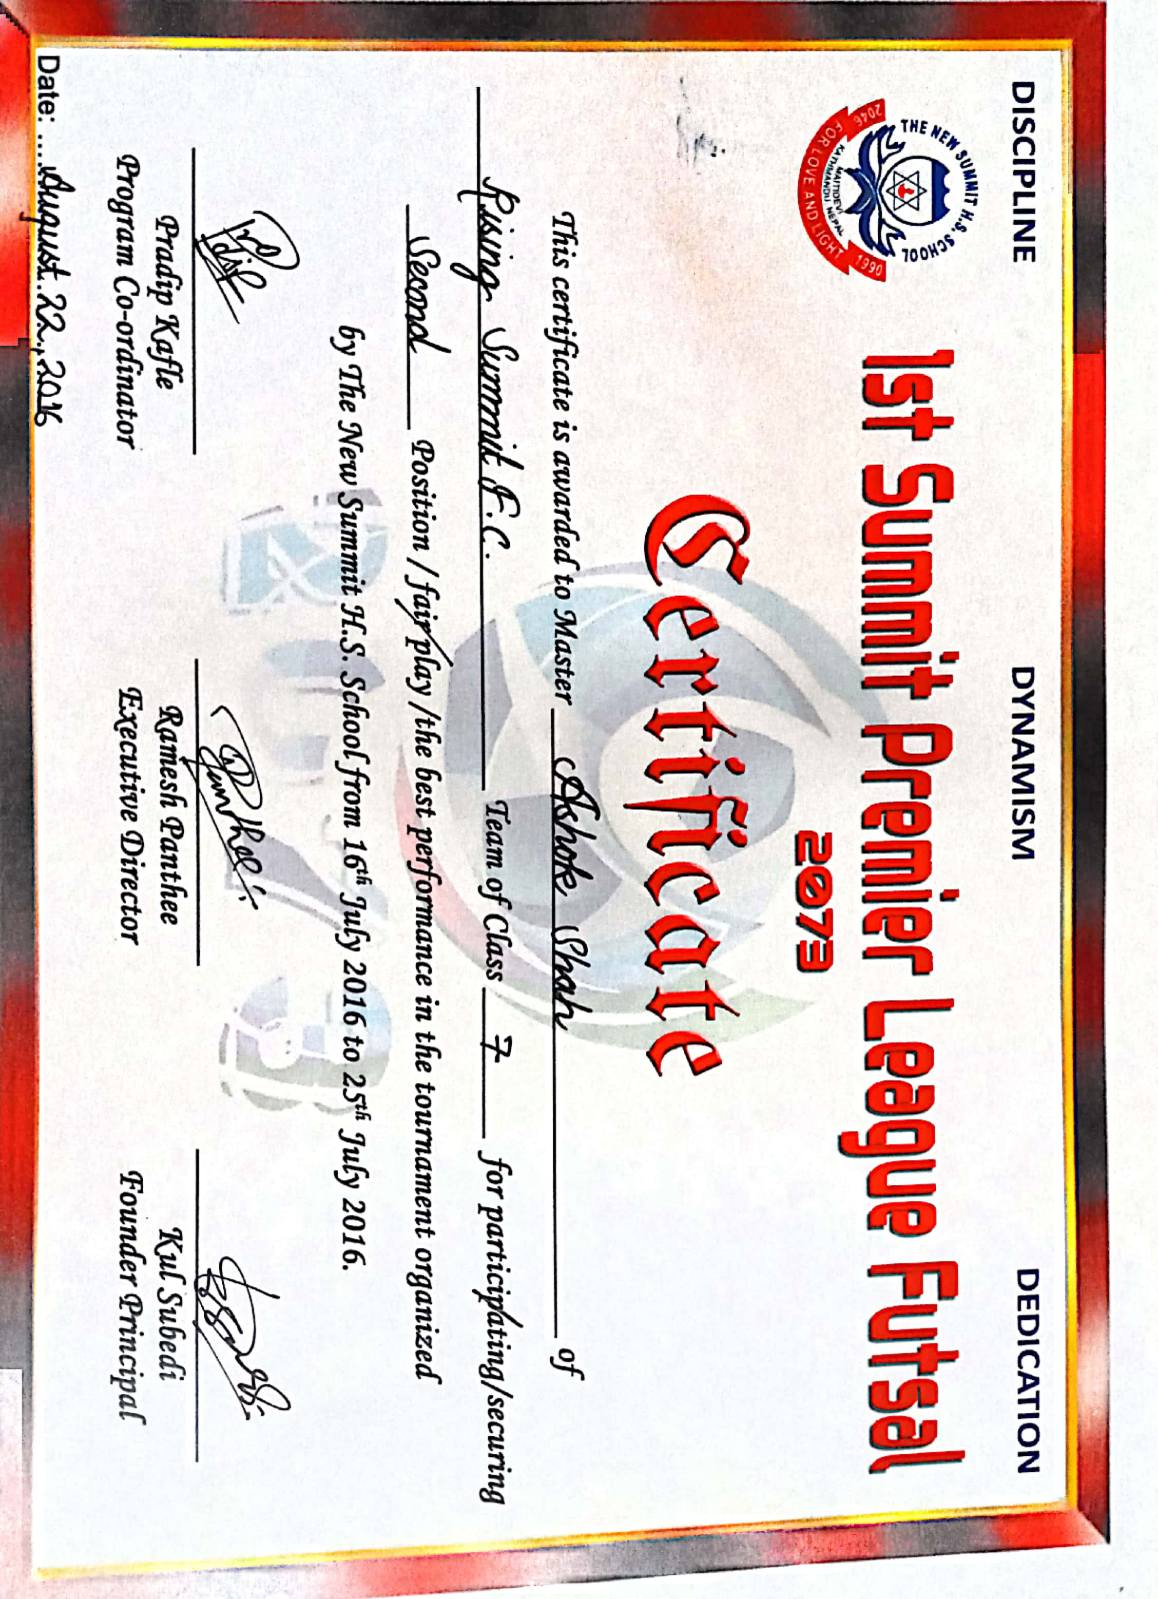 DISCIPLINE DYNAMISM DEDICATION
THE NEW SUMMIT H.S. SCHOOL
2046 1990
MAITIDEVI
KATHMANDU, NEPAL
FOR LOVE AND LIGHT
1st Summit Premier League Futsal
2073
Certificate
This certificate is awarded to Master Ashok Shah of
Rising Summit F.C. Team of Class 7 for participating/securing
Second Position / fair play / the best performance in the tournament organized
by The New Summit H.S. School from 16th July 2016 to 25th July 2016.
2073
Pradip Panthee
Pradip Kafle Ramesh Panthee Kul Subedi
Program Co-ordinator Executive Director Founder Principal
Date: .... August 22, 2016